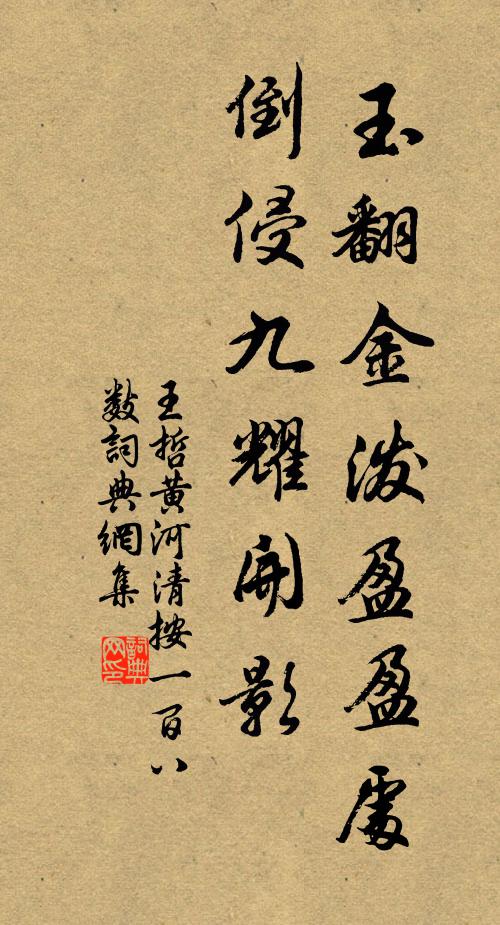 玉翻金泼盈盈處
倒侵九耀開影
王哲黄河清按一百八
数詞典網集
詞典網印